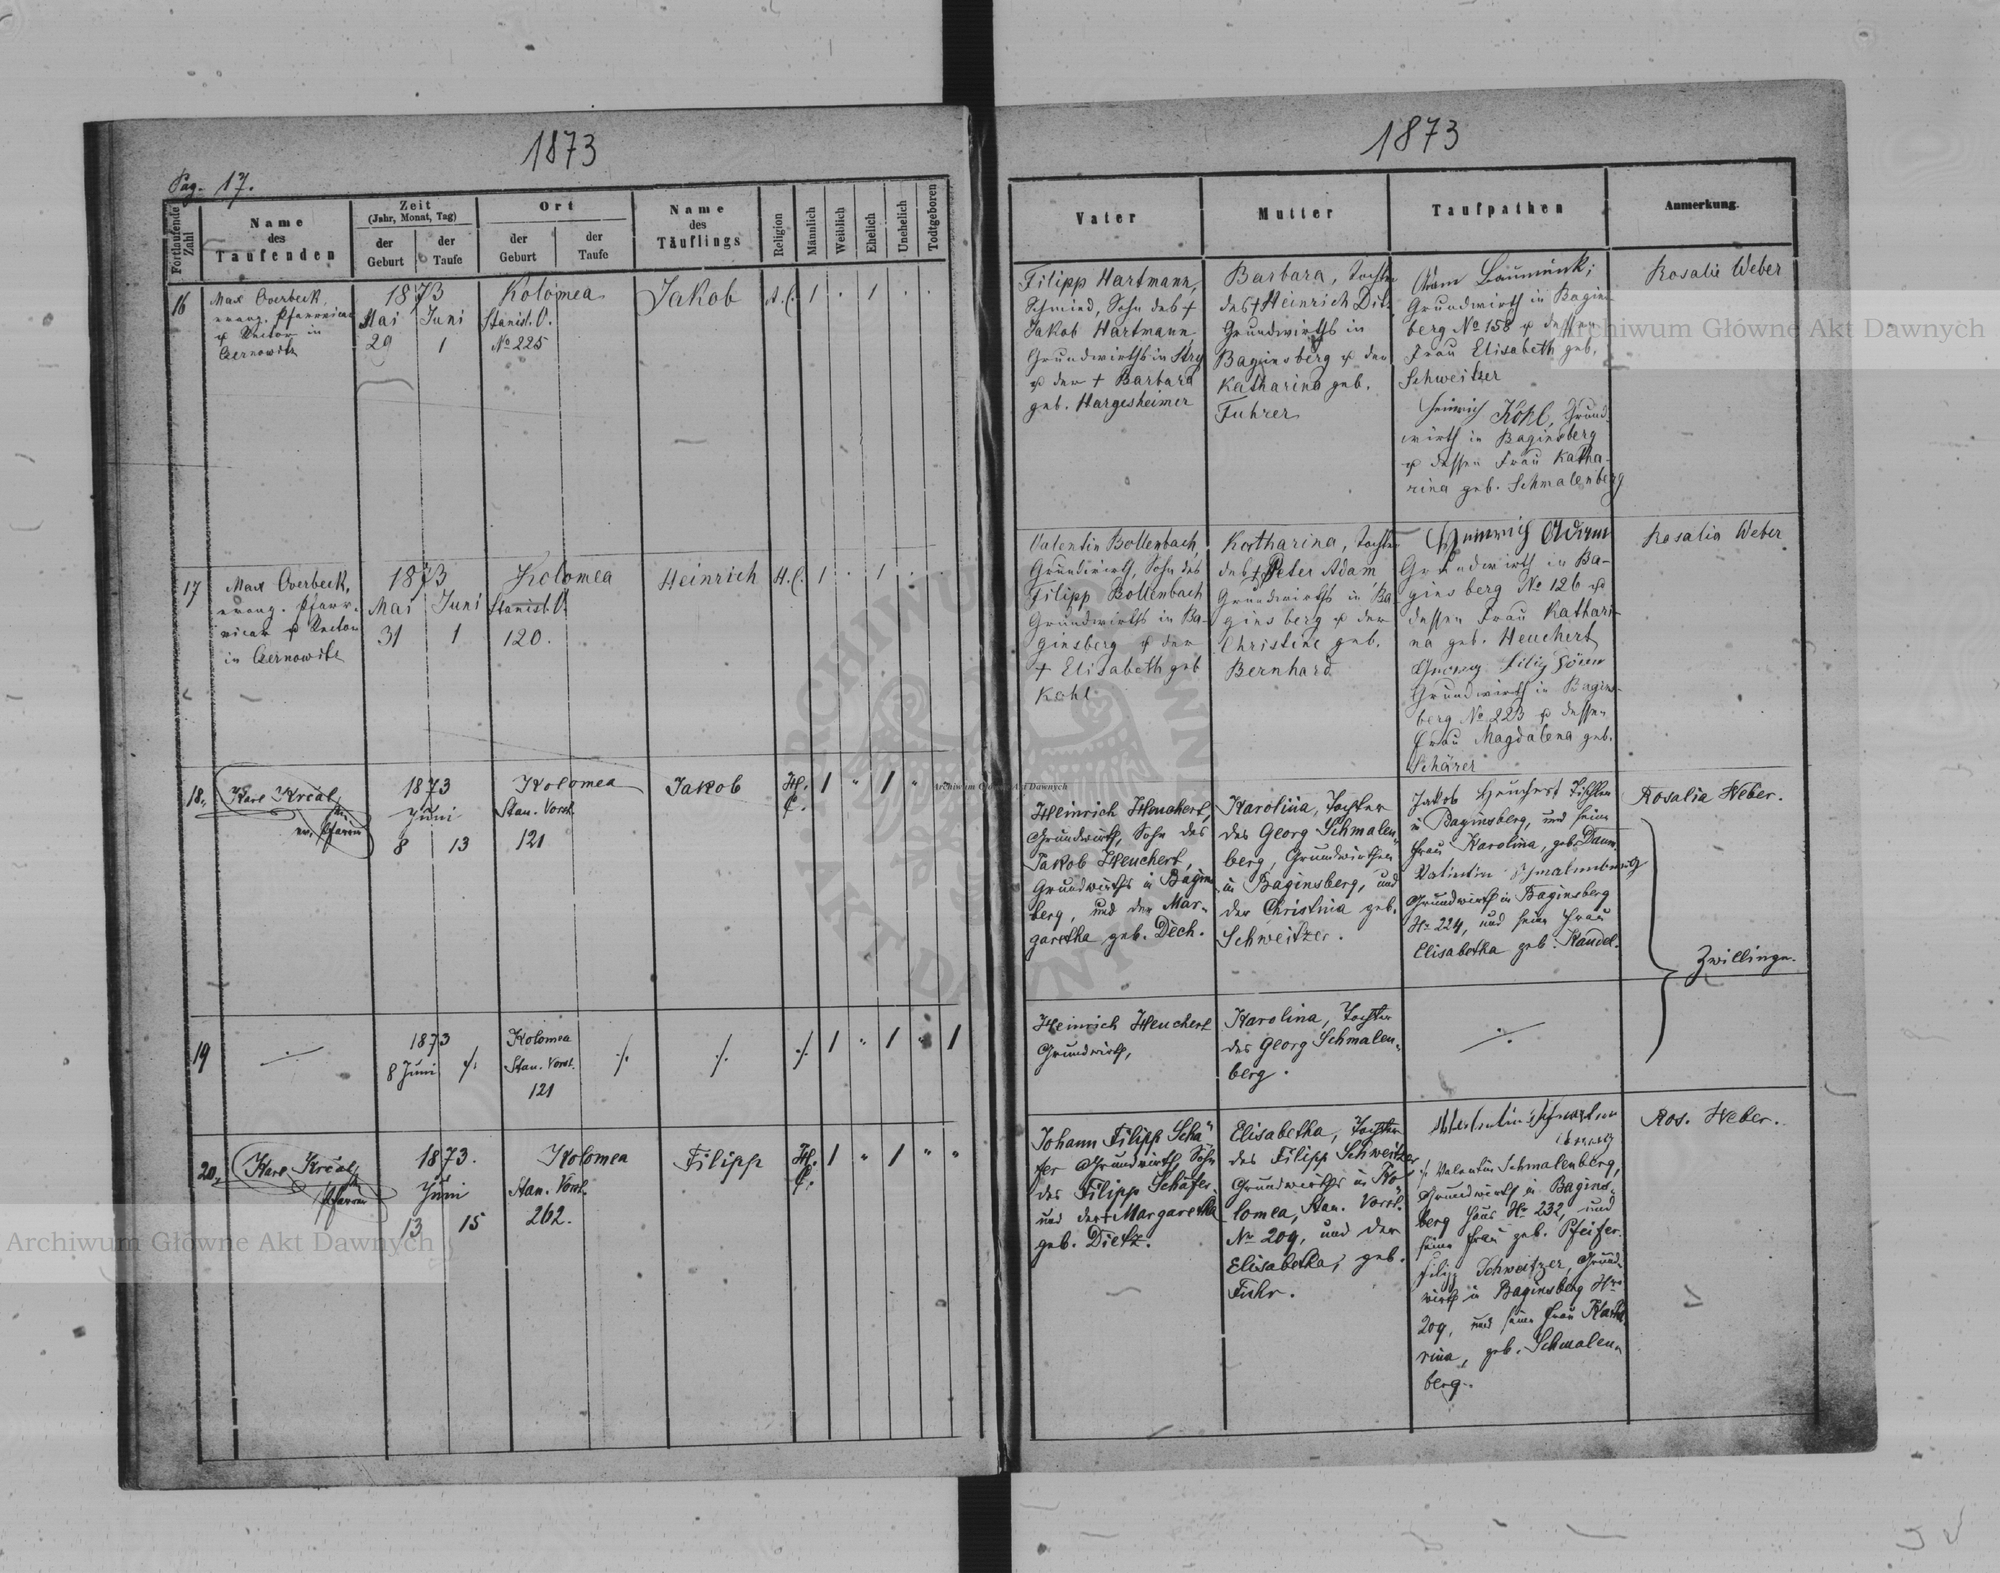 1873
Pag. 17.
Fortlaufende Zahl
Name
des
Taufenden
Zeit
(Jahr, Monat, Tag)
der
Geburt
der
Taufe
Ort
der
Geburt
der
Taufe
Name
des
Täuflings
Religion
Männlich
Weiblich
Ehelich
Unehelich
Todtgeboren
16
Max Overbeck,
evang. Pfarrvicar
u Rector in
Czernowitz
1873
Mai
29
Juni
1
Kolomea
Stanisl. V.
No 225
Jakob
H. C.
1 . 1 . .
17
Max Overbeck,
evang. Pfarr-
vicar u Rector
in Czernowitz
1873
Mai
31
Juni
1
Kolomea
Stanisl. V.
120.
Heinrich
H. C.
1 . 1 . .
18.
Karl Krcal,
ev. Pfarrer
1873
Juni
8 13
Kolomea
Stan. Vorst.
121
Jakob
H.
C.
1 " 1 "
19
./.
1873
8 Juni
./.
Kolomea
Stan. Vorst.
121
./.
./.
./.
1 " 1 " 1
20.
Karl Krcal,
Pfarrer
1873.
Juni
13 15
Kolomea
Stan. Vorst.
262.
Filipp
H.
C.
1 " 1 " "
1873
Vater
Mutter
Taufpathen
Anmerkung.
Filipp Hartmann,
Schmied, Sohn des †
Jakob Hartmann,
Grundwirths in Stry
u der † Barbara
geb. Hargesheimer
Barbara, Tochter
des † Heinrich
Grundwirths in
Baginsberg u der
Katharina geb.
Fuhrer
Grundwirth in Bagins-
berg No 158 u dessen
Frau Elisabeth geb.
Schweitzer
Heinrich Kohl, Grund-
wirth in Baginsberg
u dessen Frau Katha-
rina geb. Schmalenberg
Rosalie Weber
Valentin Bollenbach,
Grundwirth, Sohn des
Filipp Bollenbach
Grundwirths in Ba-
ginsberg u der
† Elisabeth geb
Kohl
Katharina, Tochter
des † Peter Adam
Grundwirths in Ba-
ginsberg u der
Christine geb.
Bernhard
Heinrich Adam
Grundwirth in Ba-
ginsberg No 126 u
dessen Frau Kathari-
na geb. Heuchert
Grundwirth in Bagins-
berg No 223 u dessen
Frau Magdalena geb.
Schärer
Rosalia Weber
Heinrich Heuchert,
Grundwirth, Sohn des
Jakob Heuchert,
Grundwirths in Bagins-
berg, und der Mar-
garetha geb. Dech.
Karolina, Tochter
des Georg Schmalen-
berg, Grundwirthen
in Baginsberg, und
der Christina geb.
Schweitzer.
Jakob Heuchert Tischler
in Baginsberg, und seine
Frau Karolina, geb. Daum,
Valentin Schmalenberg
Grundwirth in Baginsberg
No 224, und seine Frau
Elisabetha geb. Kandel.
Rosalia Weber.
Zwillinge.
Heinrich Heuchert
Grundwirth,
Karolina, Tochter
des Georg Schmalen-
berg.
./.
Johann Filipp Schä-
fer Grundwirth, Sohn
des Filipp Schäfer,
und der † Margaretha
geb. Dietz.
Elisabetha, Tochter
des Filipp Schweitzer
Grundwirths in Ko-
lomea, Stan. Vorst.
No 209, und der
Elisabetha, geb.
Fuhr.
./. Valentin Schmalenberg,
Grundwirth in Bagins-
berg Haus No 232, und
seine Frau geb. Pfeifer.
Filipp Schweitzer, Grund-
wirth in Baginsberg No
209, und seine Frau Katha-
rina, geb. Schmalen-
berg.
Ros. Weber.
Archiwum Główne Akt Dawnych
Archiwum Główne Akt Dawnych
Archiwum Główne Akt Dawnych